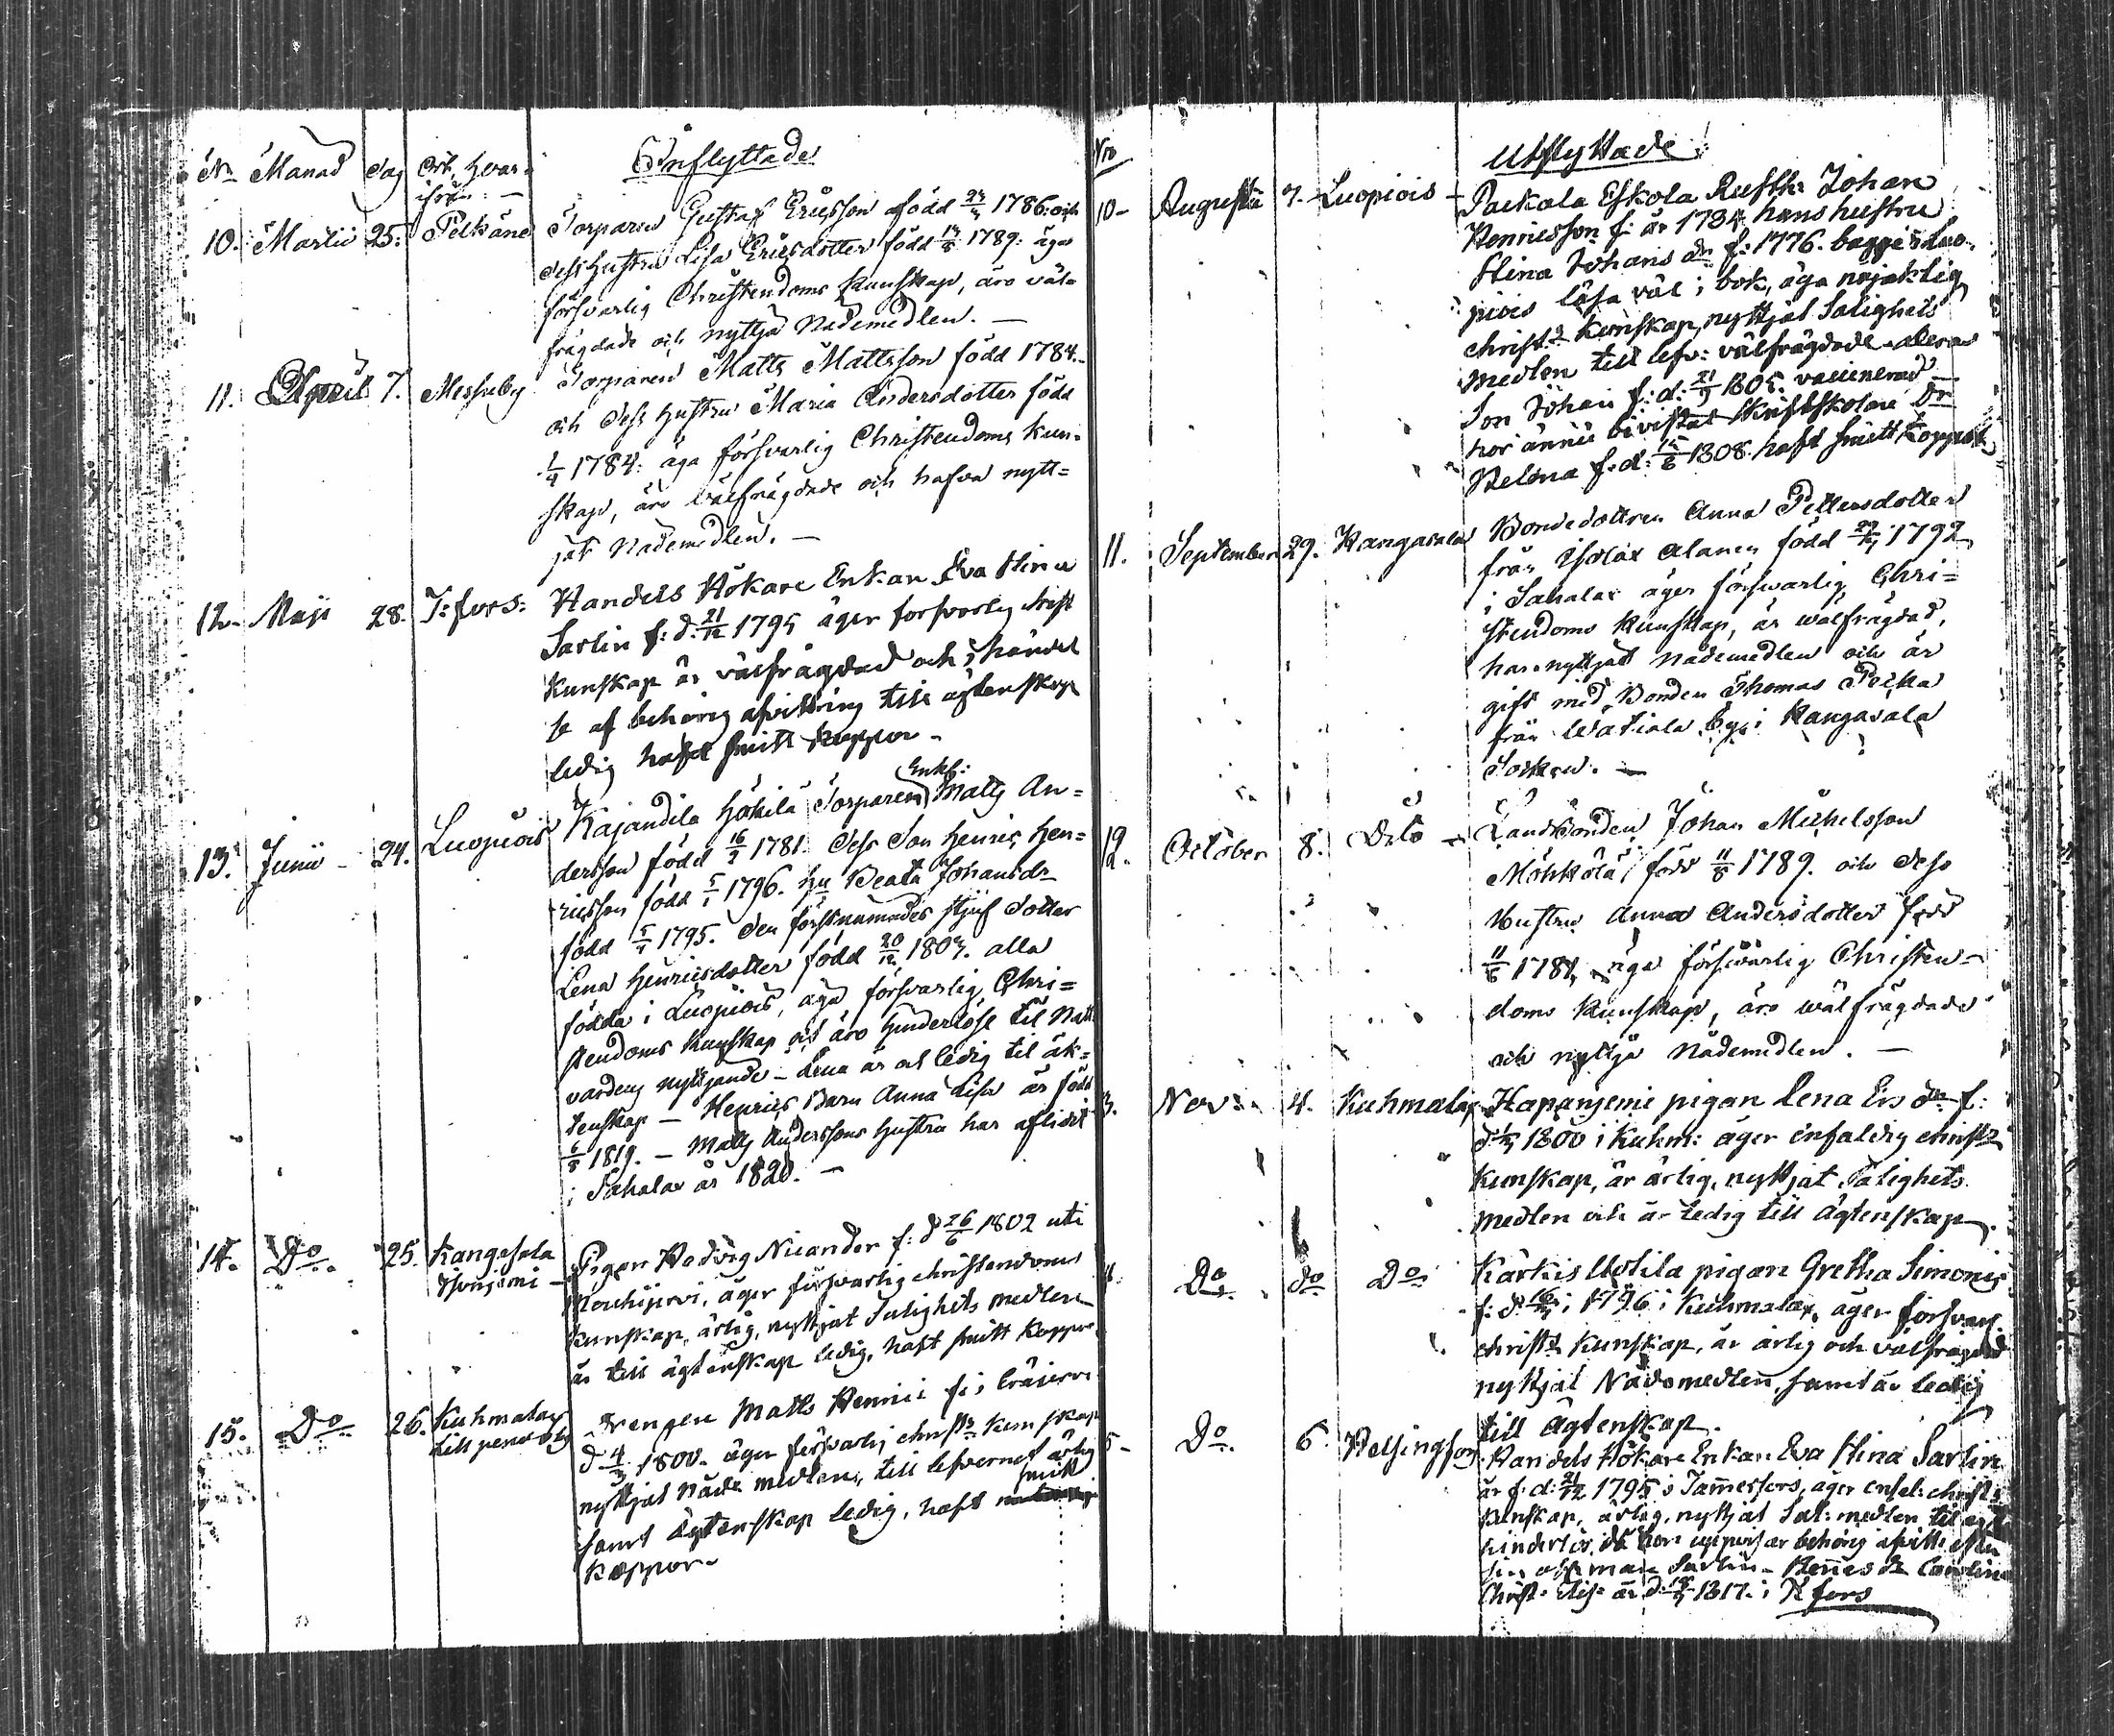 No Månad Dag Ort, hvar= Inflyttade
ifrån: —
10. Martii 25. Pelkäne Torparen Gustaf Ericsson född 1786. och
dess Hustru Lisa Ericsdotter född 1789. äga
försvarlig Christendoms Kunskap, äro väl=
frägdade och nyttja Nådemedlen. —
11. April 7. Messuby Torparen Matts Mattsson född 1784.
och dess Hustru Maria Andersdotter född
1784: äga försvarlig Christendoms Kun=
skap, äro välfrägdade och hafva nytt=
jat Nådemedlen. —
12. Maji 28. T:fors: Handels Hökare Enkan Eva Stina
Sarlin f: d: 21/12 1795 äger försvarlig Christ
Kunskap är välfrägdad och i händel
se af behörig afvittring till ägtenskap
ledig haft Smitt Koppor —
13. Junii — 24. Luopiois Kajandila Höhilä Torparen Enkl: Matts An=
dersson född 16/2 1781. dess Son Henric Hen=
ricsson född 1796. Hu Beata Johansdr
född 1795. den förstnämndes Stjuf dotter
Lena Henricsdotter född 20/12 1803. alla
födda i Luopiois, äga försvarlig Chri=
stendoms Kunskap och äro hinderlöse til Natt
vardens nyttjande — Lena är och ledig til äk=
tenskap — Henrics Barn Anna Lisa är född
1819. — Matts Anderssons Hustru har aflidit
i Sahalax år 1820. —
14. Do 25. Kangasala Pigan Hedvig Nicander f: d 26/6 1802 uti
Kouhijervi, äger försvarlig christendoms
Kunskap, ärlig, nyttjat Salighets medlen
är till ägtenskap ledig, haft Smitt Koppor
15. Do 26. Kuhmalax Drengen Matts Henrici f: i
d 4/3 1800. äger försvarlig christ Kunskap
nyttjat Nåde medlen, till lefvernet ärlig
samt ägtenskap ledig, haft Smitt
Koppor —
Nro Utflyttade
10— Augusti 7. Luopiois — Packala Eskola Rusth: Johan
Henricsson f: år 1734, hans hustru
Stina Johans dr f: 1776. bägge i Luo=
piois läsa väl i bok, äga nöjaktig
christ: Kunskap, nyttjat Salighets
medlen till lefv: välfrägdade. deras
Son Johan f: d: 21/9 1805. vaccinerad —
har ännu bivistat Skriftskolan Dr
Helena f: d: 15/6 1808. haft Smitt Koppor
11. September 29. Kangasala Bondedottren Anna Pettersdotter
från Isolax Alanen född 1792
i Sahalax äger försvarlig Chri=
stendoms Kunskap, är wälfrägdad,
har nyttjat Nådemedlen och är
gift med Bonden Thomas Pecka
från Watiala By i Kangasala
Socken. —
12. October 8. Dito — Landbonden Johan Michelsson
Möhkölä, född 11/8 1789. och dess
Hustru Anna Andersdotter född
1784, äga försvarlig Christen=
doms Kunskap, äro wälfrägdade
och nyttja Nådemedlen. —
3. Nov: 4. Kuhmalax Hapaniemi pigan Lena Ers dr f:
1800 i Kuhm: äger enfaldig christ
Kunskap, är ärlig, nyttjat Salighets
medlen och är ledig till ägtenskap.
4. Do do Do Kärkis Uotila pigan Gretha Simonis
f: d: 1796 i Kuhmalax, äger försvarl
christ Kunskap, är ärlig och välfrägdad
nyttjat Nådemedlen, samt är ledig
till ägtenskap.
5— Do. 6. Helsingfors Handels Hökare Enkan Eva Stina Sarlin
är f: d: 21/12 1795 i Tammerfors, äger enfal: christ
Kunskap, ärlig, nyttjat Sal: medlen til
hinderlös, då hon uppvisar behörig afvitt: efter
sin man Sarlin — Hennes dr Carolina
Christ: är d: 1817. i Kfors